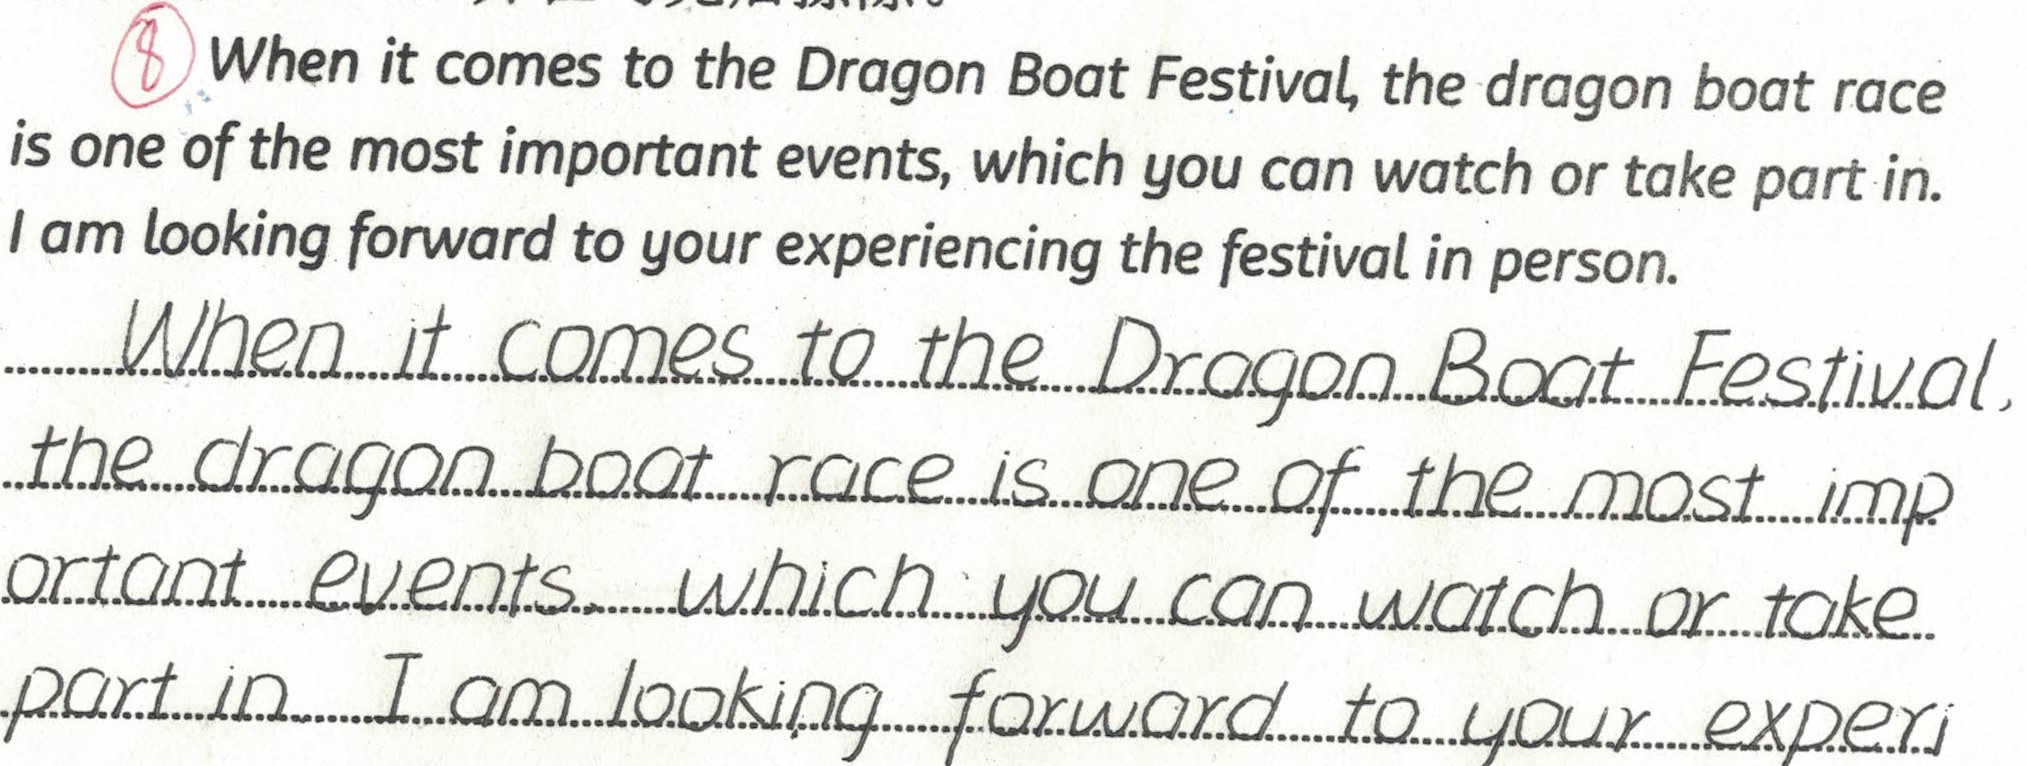 ⑧ When it comes to the Dragon Boat Festival, the dragon boat race
is one of the most important events, which you can watch or take part in.
I am looking forward to your experiencing the festival in person.
When it comes to the Dragon Boat Festival,
the dragon boat race is one of the most imp
ortant events, which you can watch or take
part in I am looking forward to your experi